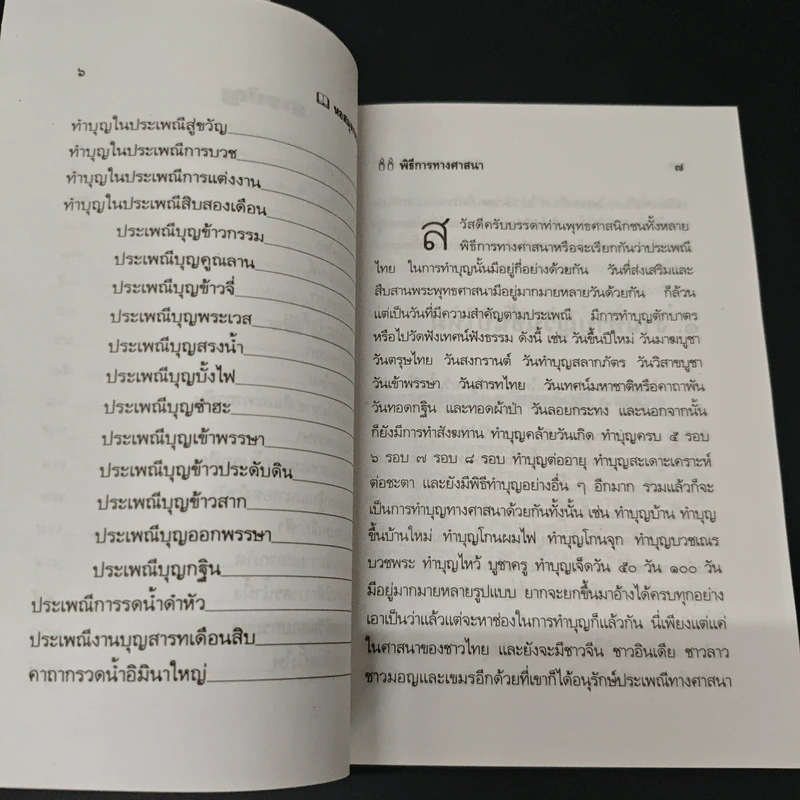 ๖
ทำบุญในประเพณีสู่ขวัญ
ทำบุญในประเพณีการบวช
ทำบุญในประเพณีการแต่งงาน
ทำบุญในประเพณีสิบสองเดือน
ประเพณีบุญข้าวกรรม
ประเพณีบุญคูณลาน
ประเพณีบุญข้าวจี่
ประเพณีบุญพระเวส
ประเพณีบุญสรงน้ำ
ประเพณีบุญบั้งไฟ
ประเพณีบุญชำฮะ
ประเพณีบุญเข้าพรรษา
ประเพณีบุญข้าวประดับดิน
ประเพณีบุญข้าวสาก
ประเพณีบุญออกพรรษา
ประเพณีบุญกฐิน
ประเพณีการรดน้ำดำหัว
ประเพณีงานบุญสารทเดือนสิบ
คาถากรวดน้ำอิมินาใหญ่
พิธีการทางศาสนา ๗
สวัสดีครับบรรดาท่านพุทธศาสนิกชนทั้งหลาย
พิธีการทางศาสนาหรือจะเรียกกันว่าประเพณี
ไทย ในการทำบุญนั้นมีอยู่กี่อย่างด้วยกัน วันที่ส่งเสริมและ
สืบสานพระพุทธศาสนามีอยู่มากมายหลายวันด้วยกัน ก็ล้วน
แต่เป็นวันที่มีความสำคัญตามประเพณี มีการทำบุญตักบาตร
หรือไปวัดฟังเทศน์ฟังธรรม ดังนี้ เช่น วันขึ้นปีใหม่ วันมาฆบูชา
วันตรุษไทย วันสงกรานต์ วันทำบุญสลากภัตร วันวิสาขบูชา
วันเข้าพรรษา วันสารทไทย วันเทศน์มหาชาติหรือคาถาพัน
วันทอดกฐิน และทอดผ้าป่า วันลอยกระทง และนอกจากนั้น
ก็ยังมีการทำสังฆทาน ทำบุญคล้ายวันเกิด ทำบุญครบ ๕ รอบ
๖ รอบ ๗ รอบ ๘ รอบ ทำบุญต่ออายุ ทำบุญสะเดาะเคราะห์
ต่อชะตา และยังมีพิธีทำบุญอย่างอื่น ๆ อีกมาก รวมแล้วก็จะ
เป็นการทำบุญทางศาสนาด้วยกันทั้งนั้น เช่น ทำบุญบ้าน ทำบุญ
ขึ้นบ้านใหม่ ทำบุญโกนผมไฟ ทำบุญโกนจุก ทำบุญบวชเณร
บวชพระ ทำบุญไหว้ บูชาครู ทำบุญเจ็ดวัน ๕๐ วัน ๑๐๐ วัน
มีอยู่มากมายหลายรูปแบบ ยากจะยกขึ้นมาอ้างได้ครบทุกอย่าง
เอาเป็นว่าแล้วแต่จะหาช่องในการทำบุญก็แล้วกัน นี่เพียงแต่แค่
ในศาสนาของชาวไทย และยังจะมีชาวจีน ชาวอินเดีย ชาวลาว
ชาวมอญและเขมรอีกด้วยที่เขาก็ได้อนุรักษ์ประเพณีทางศาสนา